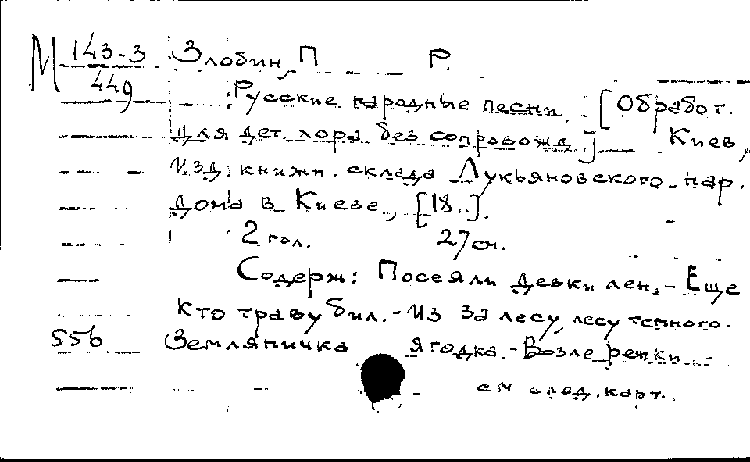 М 143-3 Злобин, П Р
449
Русские народные песни. [Обработ.
для дет. хора без сопровожд.] Киев,
Изд. книжн. склада Лукьяновского нар.
дома в Киеве, [18..].
2 гол. 27 см.
Содерж: Посеяли девки лен. - Еще
кто траву бил. - Из за лесу, лесу темного.
556 Земляничка ягодка. - Возле речки. -
см след. карт.